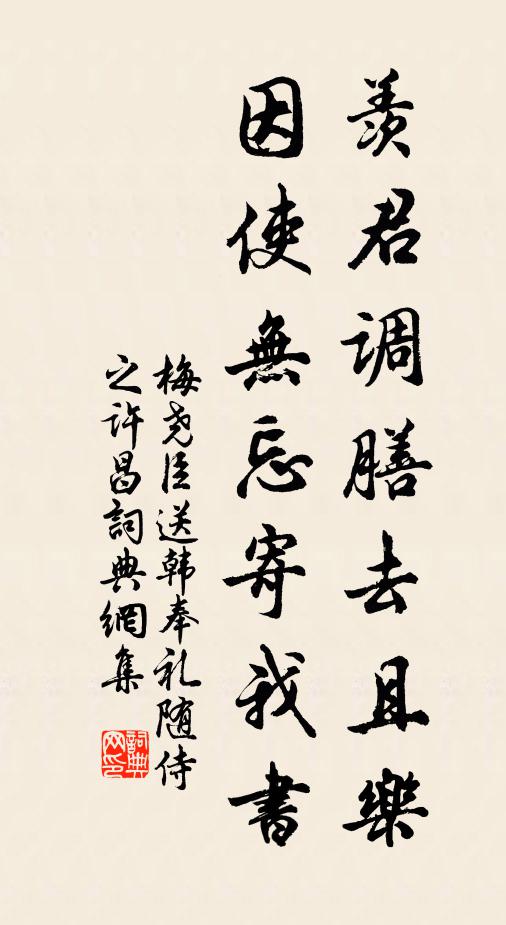 羨君调膳去且樂
因使無忘寄我書
梅尧臣送韩奉礼随侍
之许昌詞典網集
詞典
网印